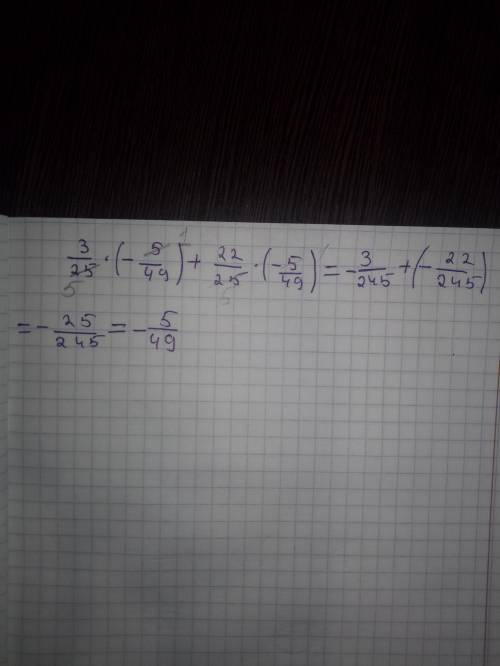 3/25 · (- 5/49) + 22/25 · (- 5/49) = - 3/245 + (- 22/245)
= - 25/245 = - 5/49